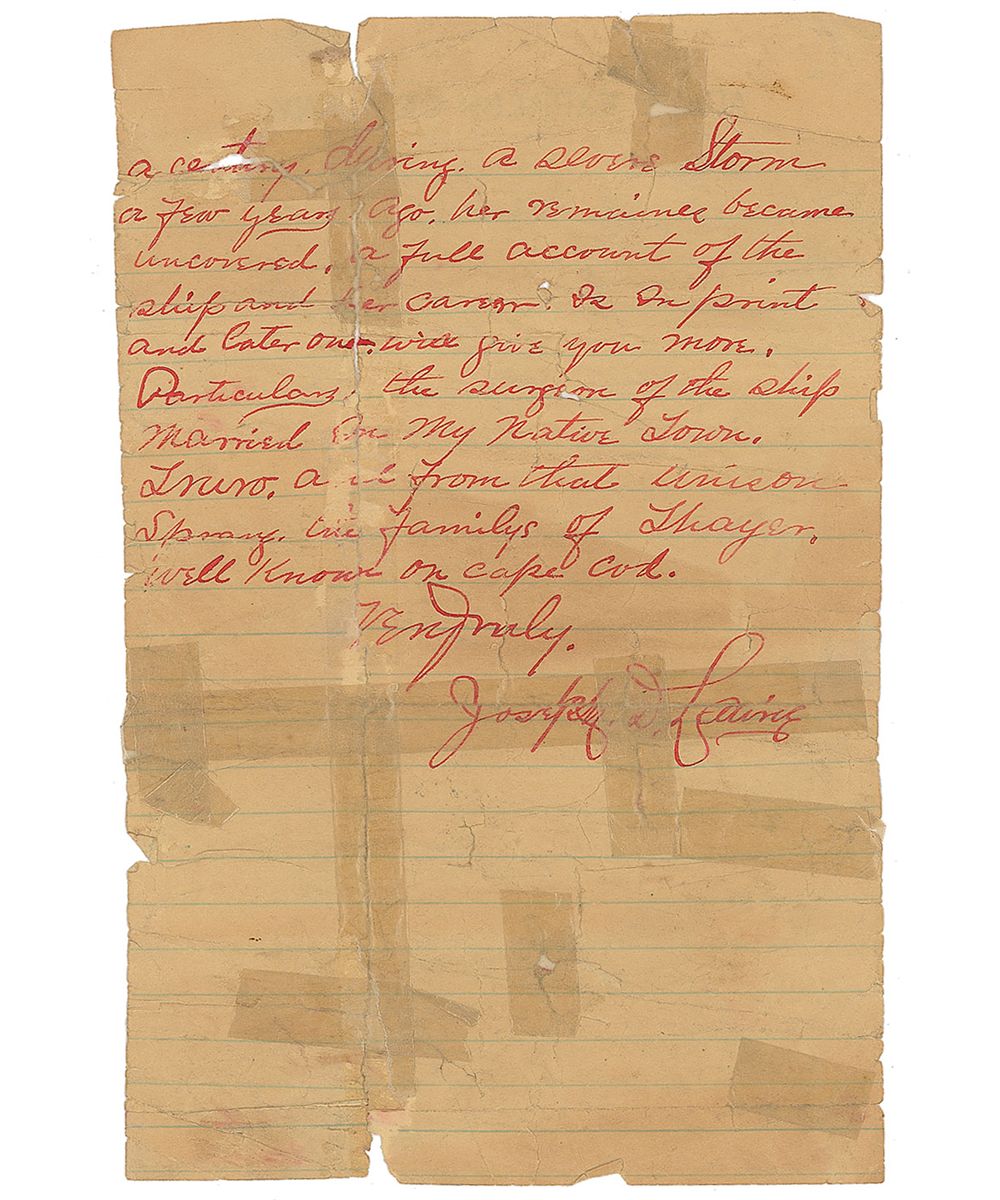 a century. during. a severe Storm
a few years ago. her remaines became
uncovered. a full account of the
ship and her career. Is In print
and later one. will give you more.
Particulars the surgeon of the ship
Married In My Native Town.
Truro. and from that unison
Sprang. the familys of Thayer.
well Known on cape Cod.
Very Truly.
Joseph. D.